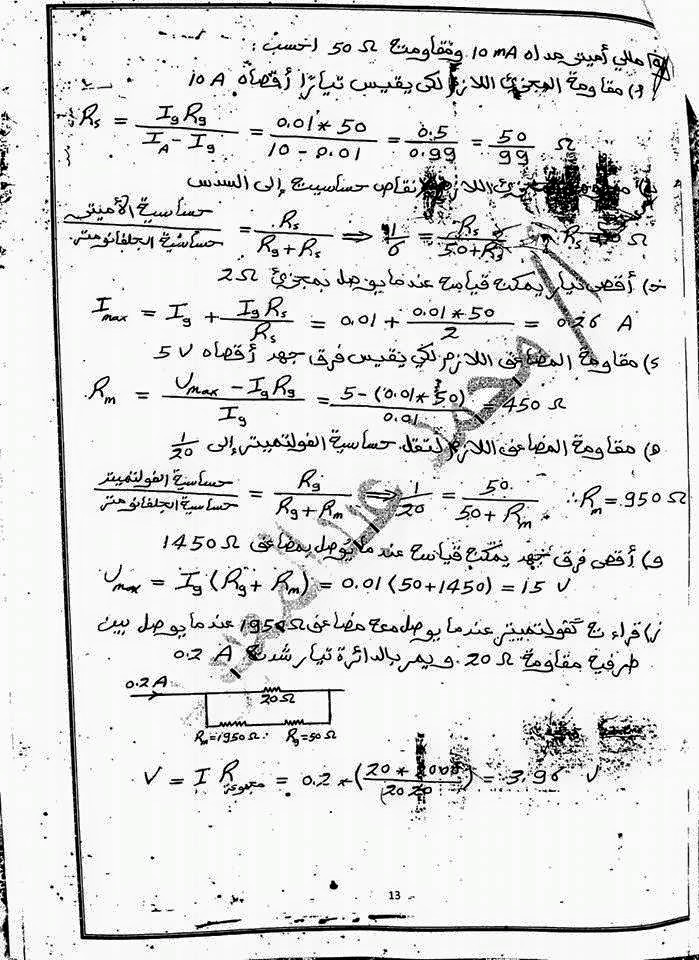 مللي أميتر مداه 10 mA ومقاومته 50 Ω احسب :
مقاومة المجزئ اللازم لكي يقيس تيارًا أقصاه 10 A
Rs = Ig Rg / IA - Ig = 0.01 * 50 / 10 - 0.01 = 0.5 / 0.99 = 50 / 99 Ω
اللازم لانقاص حساسيته إلى السدس
حساسية الأميتر / حساسية الجلفانومتر = Rs / Rg + Rs ⇒ 1 / 6 = Rs / 50 + Rs Rs = Ω
ج) أقصى تيار يمكنه قياسه عندما يوصل بمجزئ 2Ω
Imax = Ig + Ig Rs / Rs = 0.01 + 0.01 * 50 / 2 = 0.26 A
د) مقاومة المضاعف اللازم لكي يقيس فرق جهد أقصاه 5 V
Rm = Vmax - Ig Rg / Ig = 5 - (0.01 * 50) / 0.01 = 450 Ω
ه) مقاومة المضاعف اللازم لتقل حساسية الفولتميتر إلى 1/20
حساسية الفولتميتر / حساسية الجلفانومتر = Rg / Rg + Rm ⇒ 1 / 20 = 50 / 50 + Rm ∴ Rm = 950 Ω
و) أقصى فرق جهد يمكنه قياسه عندما يوصل بمضاعف 1450 Ω
Vmax = Ig (Rg + Rm) = 0.01 (50 + 1450) = 15 V
ز) قراءته كفولتميتر عندما يوصل معه مضاعف 1950 Ω عندما يوصل بين
طرفية مقاومة 20 Ω و يمر بالدائرة تيار شدته 0.2 A
0.2 A
20 Ω
Rm = 1950 Ω Rg = 50 Ω
V = I R مجموعة = 0.2 * (20 * 2000 / 2020) = 3.96 V
13